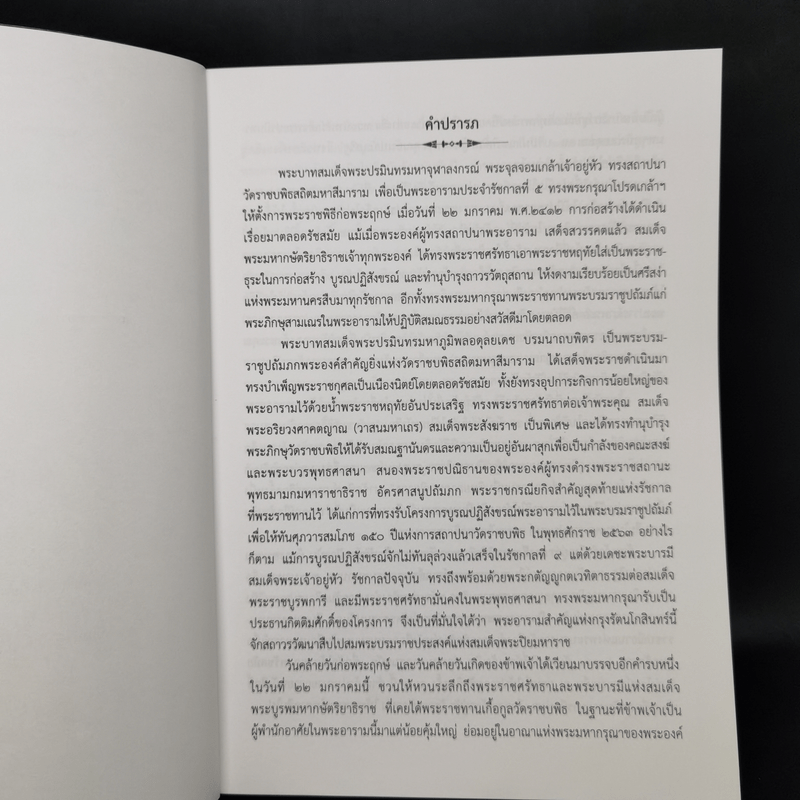 คำปรารภ
พระบาทสมเด็จพระปรมินทรมหาจุฬาลงกรณ์ พระจุลจอมเกล้าเจ้าอยู่หัว ทรงสถาปนา
วัดราชบพิธสถิตมหาสีมาราม เพื่อเป็นพระอารามประจำรัชกาลที่ ๕ ทรงพระกรุณาโปรดเกล้าฯ
ให้ตั้งการพระราชพิธีก่อพระฤกษ์ เมื่อวันที่ ๒๒ มกราคม พ.ศ.๒๔๑๒ การก่อสร้างได้ดำเนิน
เรื่อยมาตลอดรัชสมัย แม้เมื่อพระองค์ผู้ทรงสถาปนาพระอาราม เสด็จสวรรคตแล้ว สมเด็จ
พระมหากษัตริยาธิราชเจ้าทุกพระองค์ ได้ทรงพระราชศรัทธาเอาพระราชหฤทัยใส่เป็นพระราช-
ธุระในการก่อสร้าง บูรณปฏิสังขรณ์ และทำนุบำรุงถาวรวัตถุสถาน ให้งดงามเรียบร้อยเป็นศรีสง่า
แห่งพระมหานครสืบมาทุกรัชกาล อีกทั้งทรงพระมหากรุณาพระราชทานพระบรมราชูปถัมภ์แก่
พระภิกษุสามเณรในพระอารามให้ปฏิบัติสมณธรรมอย่างสวัสดีมาโดยตลอด
พระบาทสมเด็จพระปรมินทรมหาภูมิพลอดุลยเดช บรมนาถบพิตร เป็นพระบรม-
ราชูปถัมภกพระองค์สำคัญยิ่งแห่งวัดราชบพิธสถิตมหาสีมาราม ได้เสด็จพระราชดำเนินมา
ทรงบำเพ็ญพระราชกุศลเป็นเนืองนิตย์โดยตลอดรัชสมัย ทั้งยังทรงอุปการะกิจการน้อยใหญ่ของ
พระอารามไว้ด้วยน้ำพระราชหฤทัยอันประเสริฐ ทรงพระราชศรัทธาต่อเจ้าพระคุณ สมเด็จ
พระอริยวงศาคตญาณ (วาสนมหาเถร) สมเด็จพระสังฆราช เป็นพิเศษ และได้ทรงทำนุบำรุง
พระภิกษุวัดราชบพิธให้ได้รับสมณฐานันดรและความเป็นอยู่อันผาสุกเพื่อเป็นกำลังของคณะสงฆ์
และพระบวรพุทธศาสนา สนองพระราชปณิธานของพระองค์ผู้ทรงดำรงพระราชสถานะ
พุทธมามกมหาราชาธิราช อัครศาสนูปถัมภก พระราชกรณียกิจสำคัญสุดท้ายแห่งรัชกาล
ที่พระราชทานไว้ ได้แก่การที่ทรงรับโครงการบูรณปฏิสังขรณ์พระอารามไว้ในพระบรมราชูปถัมภ์
เพื่อให้ทันศุภวารสมโภช ๑๕๐ ปีแห่งการสถาปนาวัดราชบพิธ ในพุทธศักราช ๒๕๖๓ อย่างไร
ก็ตาม แม้การบูรณปฏิสังขรณ์จักไม่ทันลุล่วงแล้วเสร็จในรัชกาลที่ ๙ แต่ด้วยเดชะพระบารมี
สมเด็จพระเจ้าอยู่หัว รัชกาลปัจจุบัน ทรงถึงพร้อมด้วยพระกตัญญูกตเวทิตาธรรมต่อสมเด็จ
พระราชบูรพการี และมีพระราชศรัทธามั่นคงในพระพุทธศาสนา ทรงพระมหากรุณารับเป็น
ประธานกิตติมศักดิ์ของโครงการ จึงเป็นที่มั่นใจได้ว่า พระอารามสำคัญแห่งกรุงรัตนโกสินทร์นี้
จักสถาวรวัฒนาสืบไปสมพระบรมราชประสงค์แห่งสมเด็จพระปิยมหาราช
วันคล้ายวันก่อพระฤกษ์ และวันคล้ายวันเกิดของข้าพเจ้าได้เวียนมาบรรจบอีกคำรบหนึ่ง
ในวันที่ ๒๒ มกราคมนี้ ชวนให้หวนระลึกถึงพระราชศรัทธาและพระบารมีแห่งสมเด็จ
พระบูรพมหากษัตริยาธิราช ที่เคยได้พระราชทานเกื้อกูลวัดราชบพิธ ในฐานะที่ข้าพเจ้าเป็น
ผู้พำนักอาศัยในพระอารามนี้มาแต่น้อยคุ้มใหญ่ ย่อมอยู่ในอาณาแห่งพระมหากรุณาของพระองค์